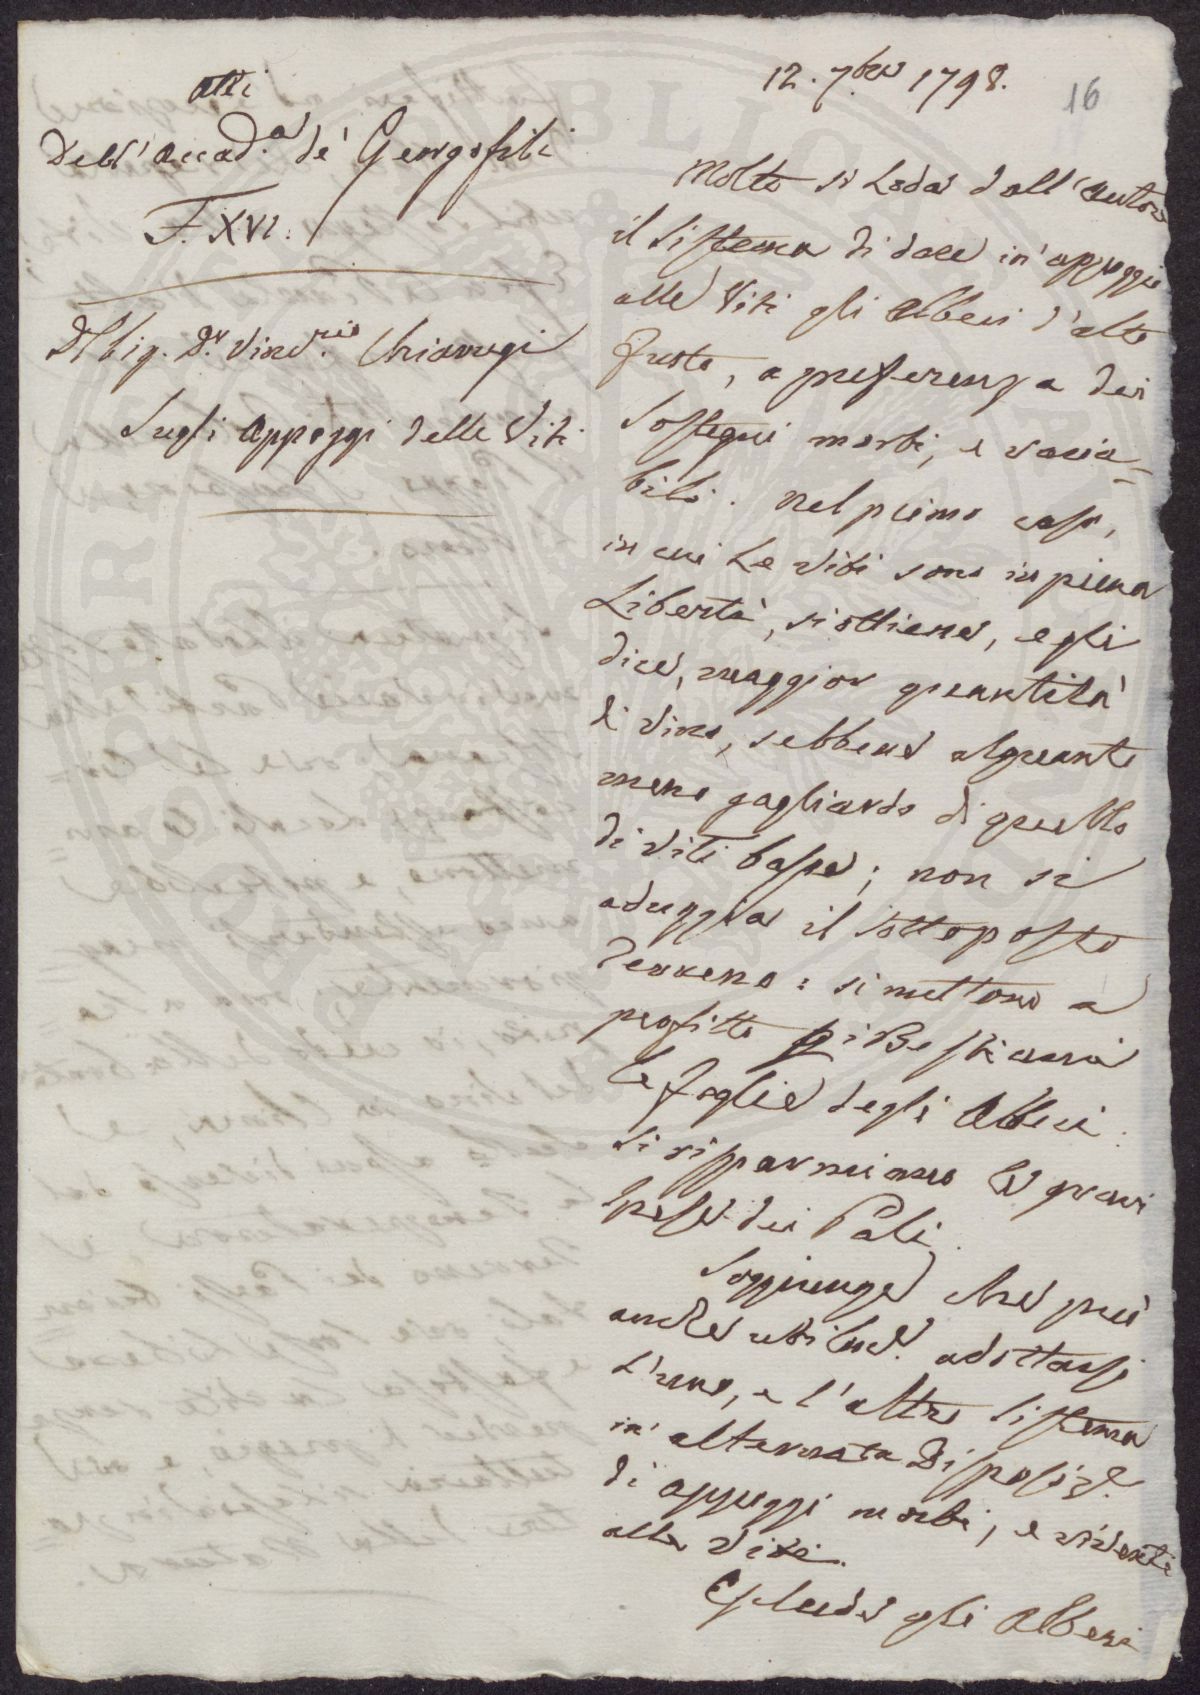 Atti
Dell'Accad.a de' Georgofili
F. XVI.
Del Sig. Dr. Vinc.zio Chiarugi
Sugli Appoggi delle Viti
12. 7bre 1798.
16
Molto si Loda dall'Autore
il Sistema di dare in appoggio
alle Viti gli Alberi d'alto
fusto, a preferenza dei
Sostegni morti, e varia=
bili. Nel primo caso,
in cui Le Viti sono in piena
Libertà, si ottiene, egli
dice, maggior quantità
di Vino, sebbene alquanto
meno gagliardo di quello
di Viti basse; non si
aduggia il Sottoposto
Terreno: si mettono a
profitto pi Bestiami
le foglie degli Alberi:
si risparmiano le gravi
spese dei Pali.
Soggiunge che può
anche utilm.e adottarsi
L'uno, e l'altro Sistema
in alternata Disposiz.e
di appoggi morti, e viventi
alle Viti.
Esclude gli Alberi